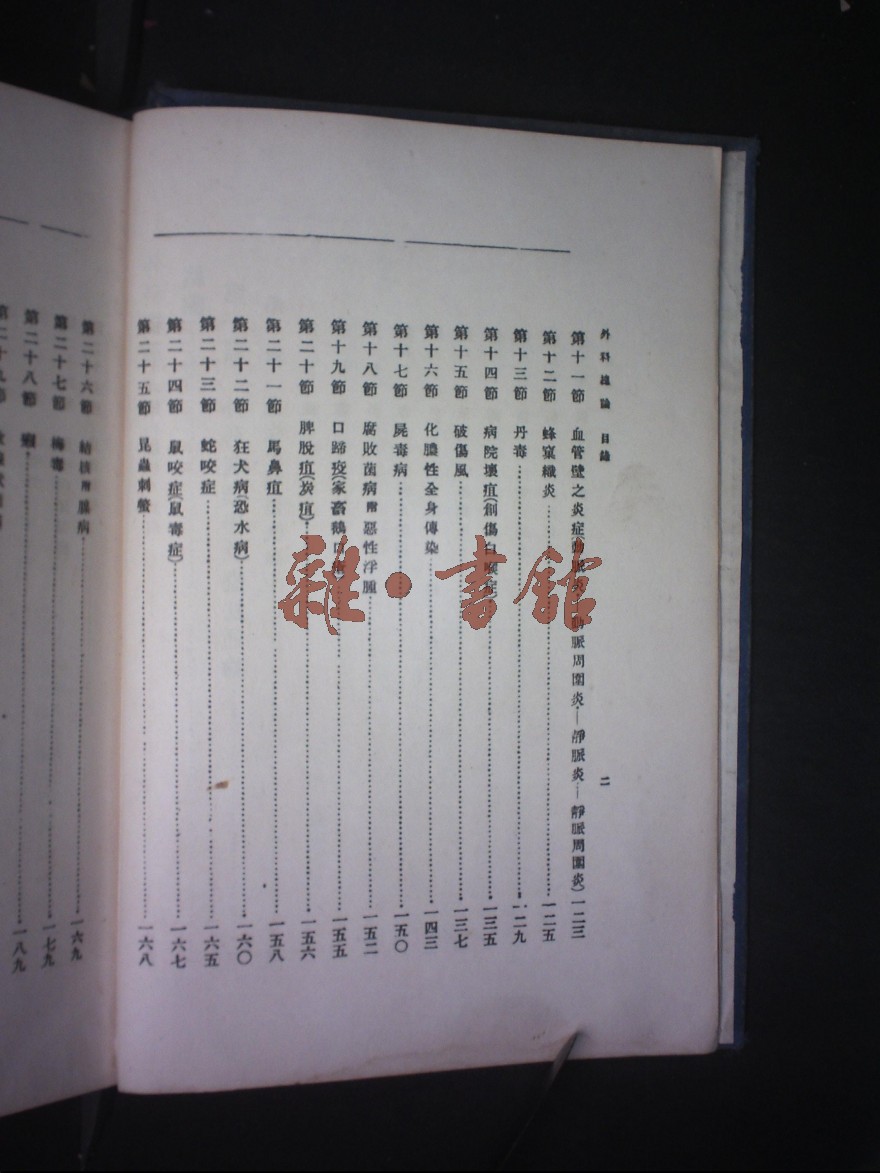 外科總論 目錄 二
第十一節 血管壁之炎症(動脈炎—動脈周圍炎—靜脈炎—靜脈周圍炎)一二三
第十二節 蜂窠織炎一二五
第十三節 丹毒一二九
第十四節 病院壞疽(創傷白喉症)一三五
第十五節 破傷風一三七
第十六節 化膿性全身傳染一四三
第十七節 屍毒病一五〇
第十八節 腐敗菌病附惡性浮腫一五二
第十九節 口蹄疫(家畜鵝口瘡)一五五
第二十節 脾脫疽(炭疽)一五六
第二十一節 馬鼻疽一五八
第二十二節 狂犬病(恐水病)一六〇
第二十三節 蛇咬症一六五
第二十四節 鼠咬症(鼠毒症)一六七
第二十五節 昆蟲刺螫一六八
第二十六節 結核附腺病一六九
第二十七節 梅毒一七九
第二十八節 一八九
第二十九節
雜·書館